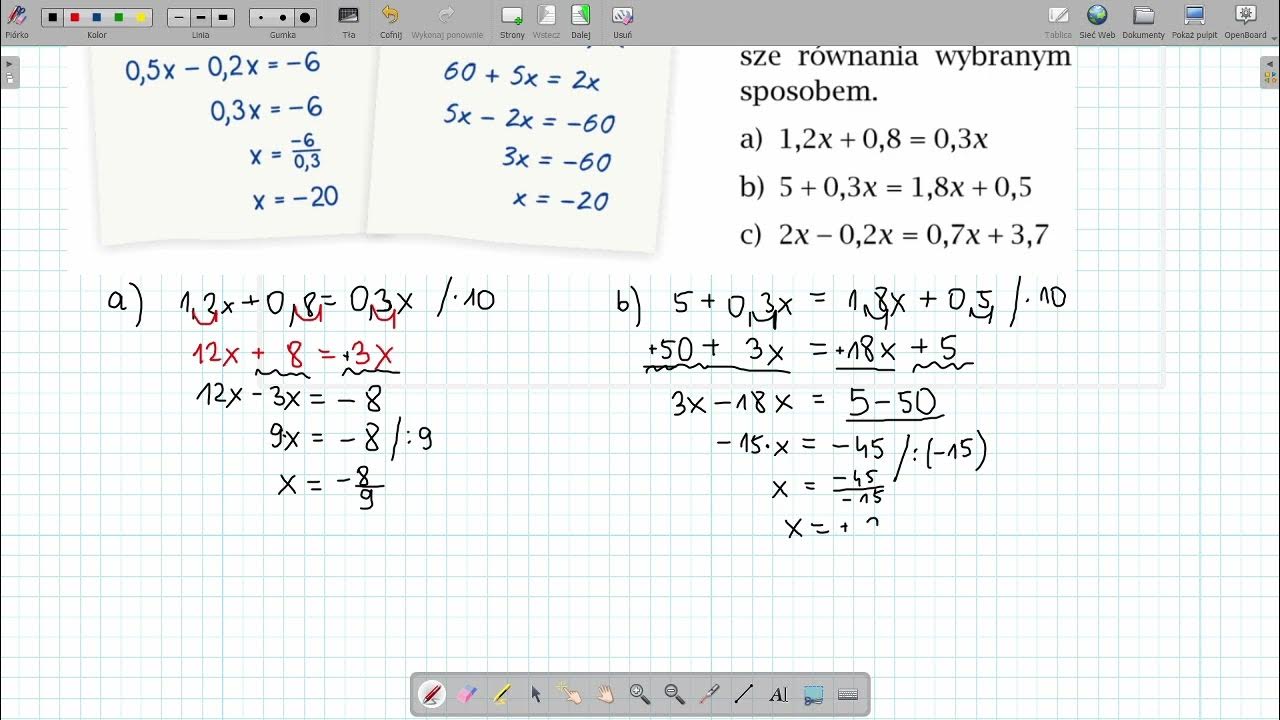 Piórko
Kolor
Linia
Gumka
Tło
Cofnij
Wykonaj ponownie
Strony
Wstecz
Dalej
Usuń
Tablica
Sieć Web
Dokumenty
Pokaż pulpit
OpenBoard
0,5x − 0,2x = −6
0,3x = −6
x = −6/0,3
x = −20
60 + 5x = 2x
5x − 2x = −60
3x = −60
x = −20
sze równania wybranym
sposobem.
a) 1,2x + 0,8 = 0,3x
b) 5 + 0,3x = 1,8x + 0,5
c) 2x − 0,2x = 0,7x + 3,7
a) 1,2x + 0,8 = 0,3x /·10
12x + 8 = +3x
12x − 3x = −8
9·x = −8 /:9
x = −8/9
b) 5 + 0,3x = 1,8x + 0,5 /·10
+50 + 3x = +18x + 5
3x − 18x = 5 − 50
−15·x = −45 /:(−15)
x = −45/−15
x = +
AI